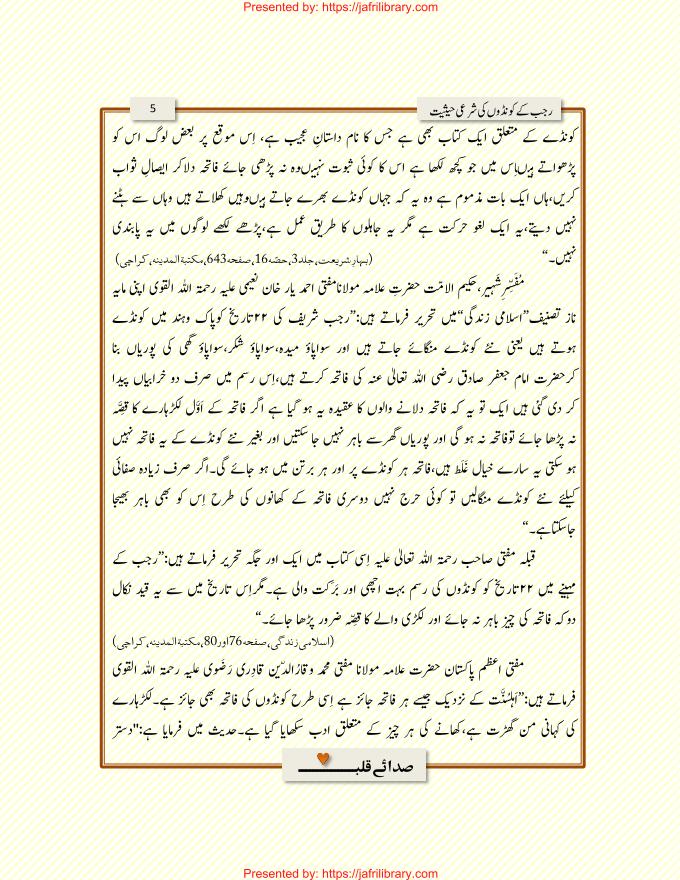 Presented by: https://jafrilibrary.com
رجب کے کونڈوں کی شرعی حیثیت
5
کونڈے کے متعلق ایک کتاب بھی ہے جس کا نام داستانِ عجیب ہے، اِس موقع پر بعض لوگ اس کو
پڑھواتے ہیں اِس میں جو کچھ لکھا ہے اس کا کوئی ثبوت نہیں وہ نہ پڑھی جائے فاتحہ دلا کر ایصالِ ثواب
کریں،ہاں ایک بات مذموم ہے وہ یہ کہ جہاں کونڈے بھرے جاتے ہیں وہیں کھلاتے ہیں وہاں سے ہٹنے
نہیں دیتے،یہ ایک لغو حرکت ہے مگر یہ جاہلوں کا طریق عمل ہے،پڑھے لکھے لوگوں میں یہ پابندی
نہیں۔“
(بہارِ شریعت،جلد3،حصّہ16،صفحہ643،مکتبۃ المدینہ،کراچی)
مُفَسِّرِ شَہِیر،حکیم الامّت حضرتِ علامہ مولانا مفتی احمد یار خان نعیمی علیہ رحمۃ اللہ القوی اپنی مایہ
ناز تصنیف”اسلامی زندگی“میں تحریر فرماتے ہیں:”رجب شریف کی ۲۲ تاریخ کو پاک وہند میں کونڈے
ہوتے ہیں یعنی نئے کونڈے منگائے جاتے ہیں اور سوا پاؤ میدہ،سوا پاؤ شکر،سوا پاؤ گھی کی پوریاں بنا
کر حضرت امام جعفر صادق رضی اللہ تعالیٰ عنہ کی فاتحہ کرتے ہیں،اِس رسم میں صرف دو خرابیاں پیدا
کر دی گئی ہیں ایک تو یہ کہ فاتحہ دلانے والوں کا عقیدہ یہ ہو گیا ہے اگر فاتحہ کے اَوَّل لکڑہارے کا قِصَّہ
نہ پڑھا جائے تو فاتحہ نہ ہو گی اور پوریاں گھر سے باہر نہیں جا سکتیں اور بغیر نئے کونڈے کے یہ فاتحہ نہیں
ہو سکتی یہ سارے خیال غَلَط ہیں،فاتحہ ہر کونڈے پر اور ہر برتن میں ہو جائے گی۔اگر صرف زیادہ صفائی
کیلئے نئے کونڈے منگا لیں تو کوئی حرج نہیں دوسری فاتحہ کے کھانوں کی طرح اِس کو بھی باہر بھیجا
جا سکتا ہے۔“
قبلہ مفتی صاحب رحمۃ اللہ تعالیٰ علیہ اِسی کتاب میں ایک اور جگہ تحریر فرماتے ہیں:”رجب کے
مہینے میں ۲۲ تاریخ کو کونڈوں کی رسم بہت اچھی اور بَرَکت والی ہے۔مگر اِس تاریخ میں سے یہ قید نکال
دو کہ فاتحہ کی چیز باہر نہ جائے اور لکڑی والے کا قصّہ ضرور پڑھا جائے۔“
(اسلامی زندگی،صفحہ76اور80،مکتبۃ المدینہ،کراچی)
مفتی اعظم پاکستان حضرت علامہ مولانا مفتی محمد وقار الدّین قادِری رَضَوی علیہ رحمۃ اللہ القوی
فرماتے ہیں:”اَہلسُنَّت کے نزدیک جیسے ہر فاتحہ جائز ہے اِسی طرح کونڈوں کی فاتحہ بھی جائز ہے۔لکڑہارے
کی کہانی من گھڑت ہے،کھانے کی ہر چیز کے متعلق ادب سکھایا گیا ہے۔حدیث میں فرمایا ہے:"دستر
صدائے قلب
Presented by: https://jafrilibrary.com